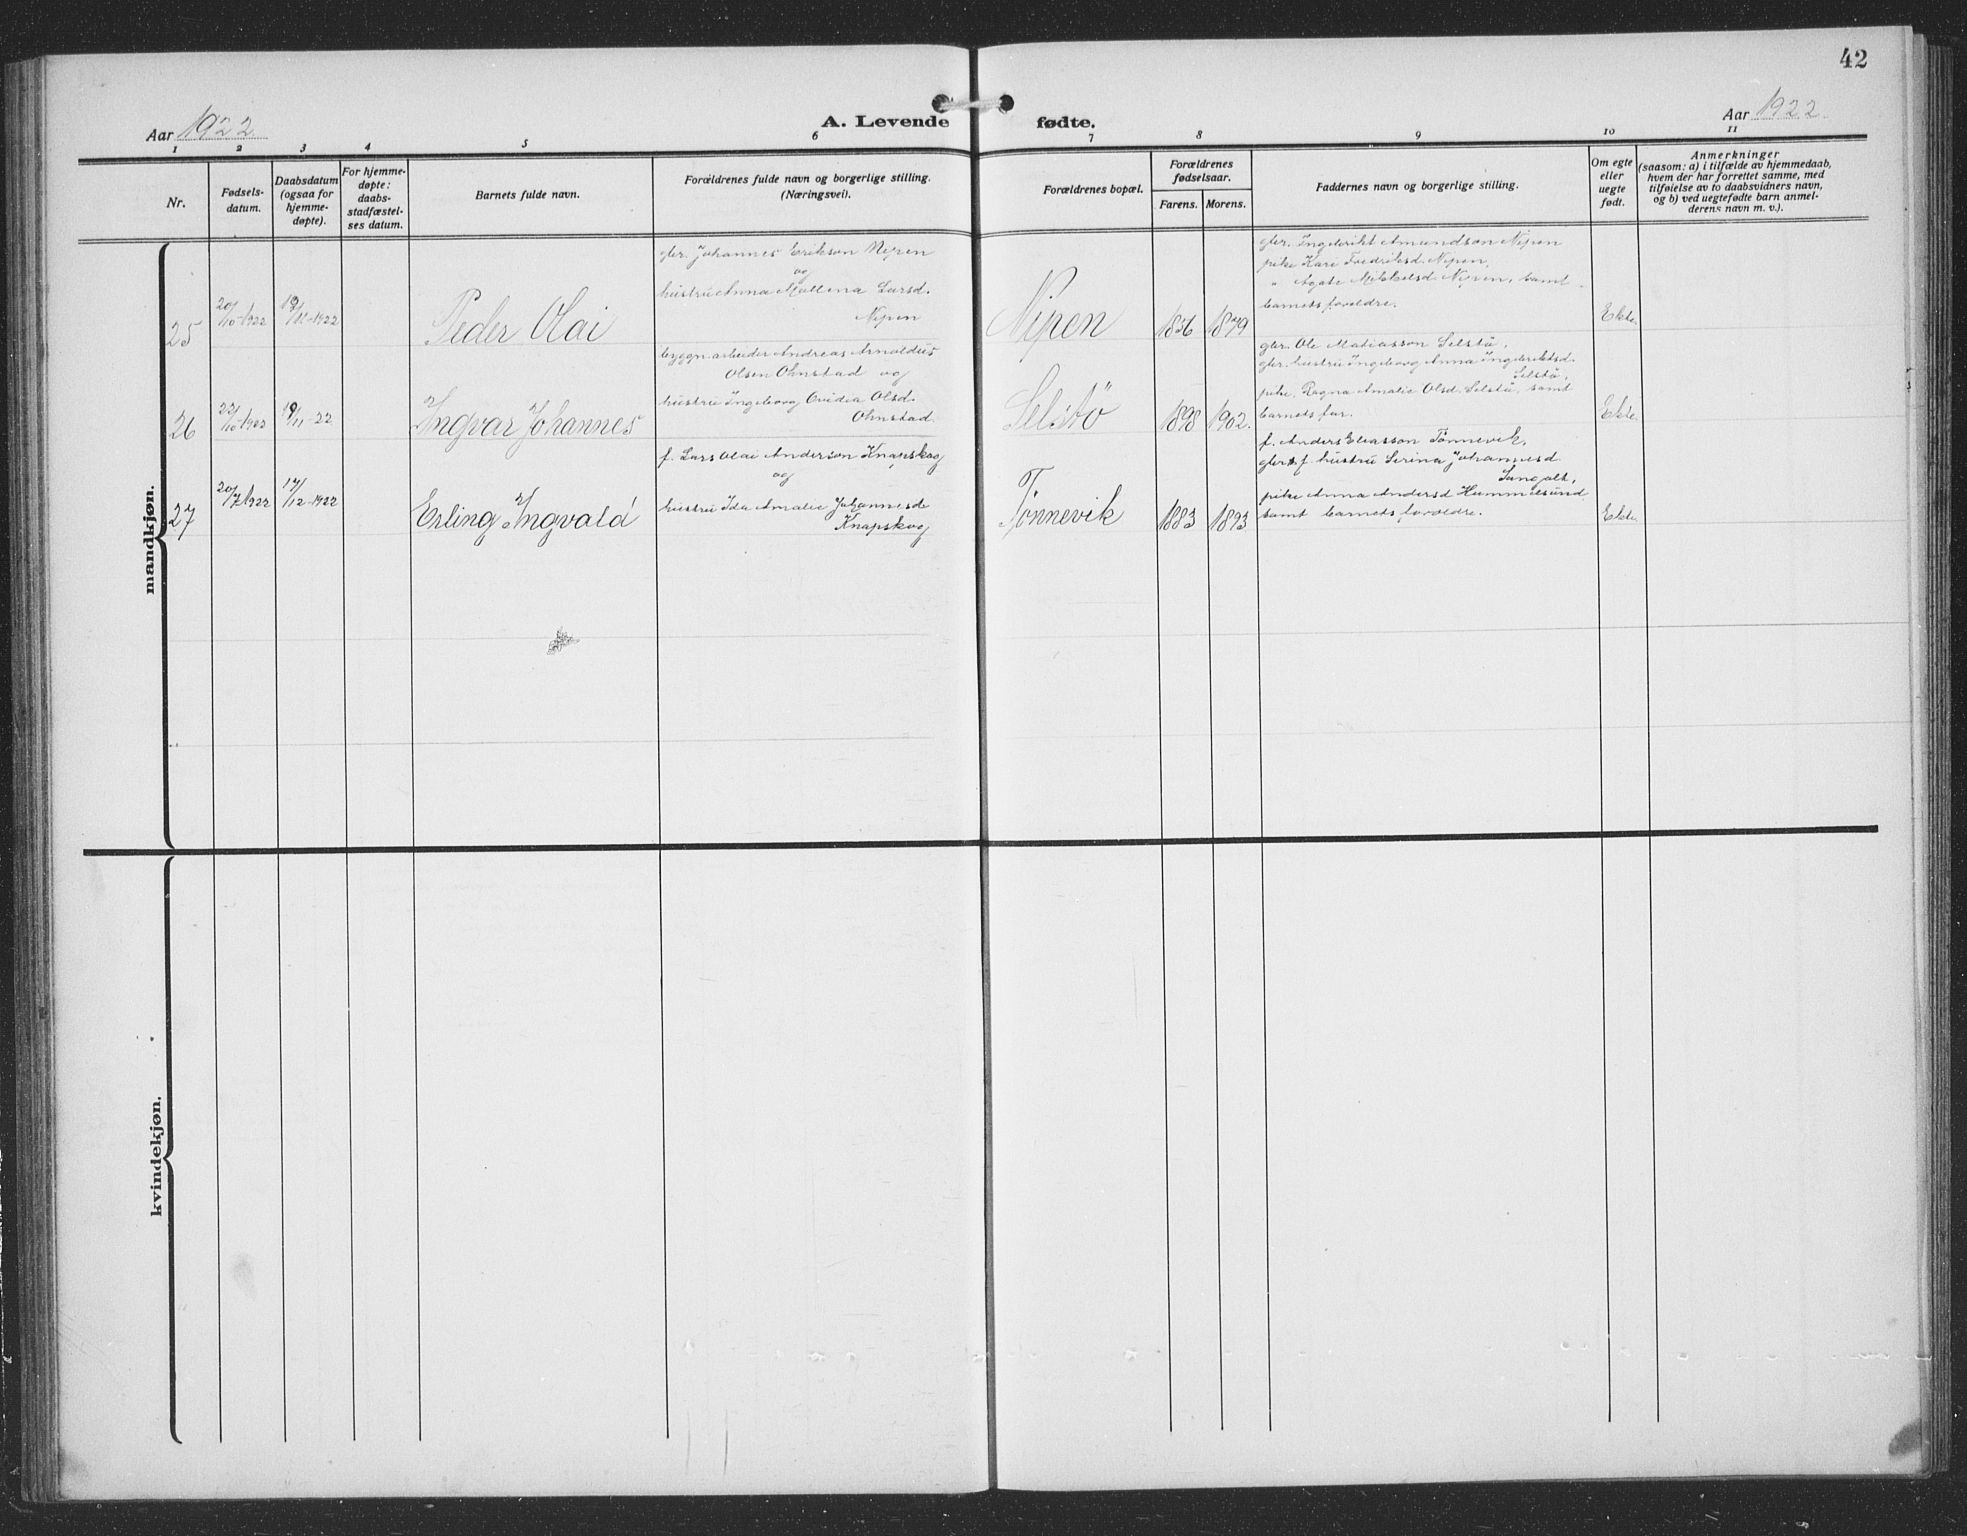 42
Aar 1922
A. Levende fødte.
Aar 1922.
1 2 3 4 5 6 7 8 9 10 11
Nr.
Fødsels-
datum.
Daabsdatum
(ogsaa for
hjemme-
døpte).
For hjemme-
døpte:
daabs-
stadfæstel-
ses datum.
Barnets fulde navn.
Forældrenes fulde navn og borgerlige stilling.
(Næringsvei).
Forældrenes bopæl.
Forældrenes
fødselsaar.
Farens. Morens.
Faddernes navn og borgerlige stilling.
Om egte
eller
uegte
født.
Anmerkninger
(saasom: a) i tilfælde av hjemmedaab,
hvem der har forrettet samme, med
tilføielse av to daabsvidners navn,
og b) ved uegtefødte barn anmel-
derens navn m. v.).
mandkjøn.
25
20/10-1922
19/11-1922
Peder Olai
gbr. Johannes Erikson Nipen
og
hustru Anna Mallena Larsd.
Nipen
Nipen
1876
1879
gbr. Ingebrikt Amundson Nipen
pike Kari Fredriksd. Nipen,
" Agate Mikkelsd. Nipen, samt
barnets foreldre.
Ekte.
26
22/10-1922
19/11-22
Ingvar Johannes
byggn. arbeider Andreas Arnoldus
Olsen Ohnstad og
hustru Ingeborg Ovidia Olsd.
Ohnstad.
Selstö
1898
1902.
gbr. Ole Matiasson Selstö,
gbr. hustru Ingeborg Anna Ingebriktsd.
Selstö,
pike. Ragna Amalie Olsd. Selstö samt
barnets far.
Ekte
27
20/7 1922
17/12-1922
Erling Ingvald
f. Lars Olai Anderson Knapskog
og
hustru Ida Amalie Johannesds
Knapskog
Tönnevik
1883
1893
f. Anders Eliasson Tönnevik,
gbr. f. hustru Serina Johannesd
Sangolt,
pike Anna Andersd Hummelsund
samt barnets foreldre.
Ekte
kvindekjøn.